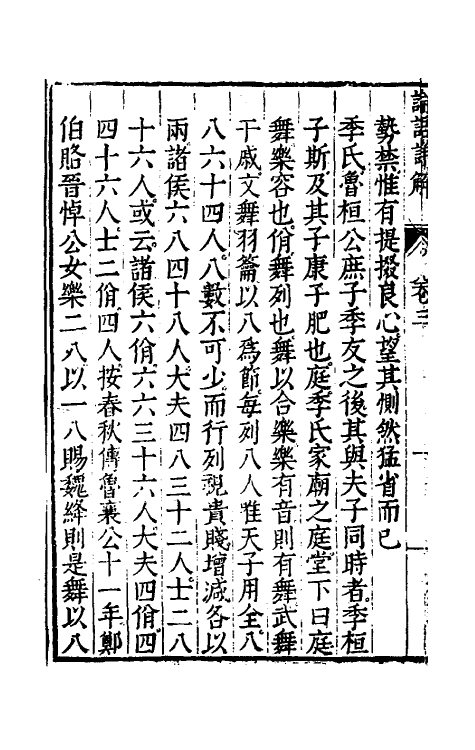 論語詳解 卷三
勢禁惟有提掇良心望其惻然猛省而已
季氏魯桓公庶子季友之後其與夫子同時者季桓
子斯及其子康子肥也庭季氏家廟之庭堂下曰庭
舞樂容也佾舞列也舞以合樂樂有音則有舞武舞
干戚文舞羽籥以八爲節每列八人惟天子用全八
八六十四人八數不可少而行列視貴賤增減各以
兩諸侯六八四十八人大夫四八三十二人士二八
十六人或云諸侯六佾六六三十六人大夫四佾四
四十六人士二佾四人按春秋傳魯襄公十一年鄭
伯賂晉悼公女樂二八以一八賜魏絳則是舞以八